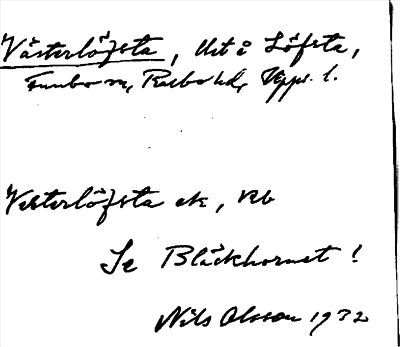 Västerlöfsta, Ut i Löfsta,
Funbo sn, Rasbo hd, Upps. l.
Vesterlöfsta ek, Rb
Se Bläckhornet!
Nils Olsson 1932